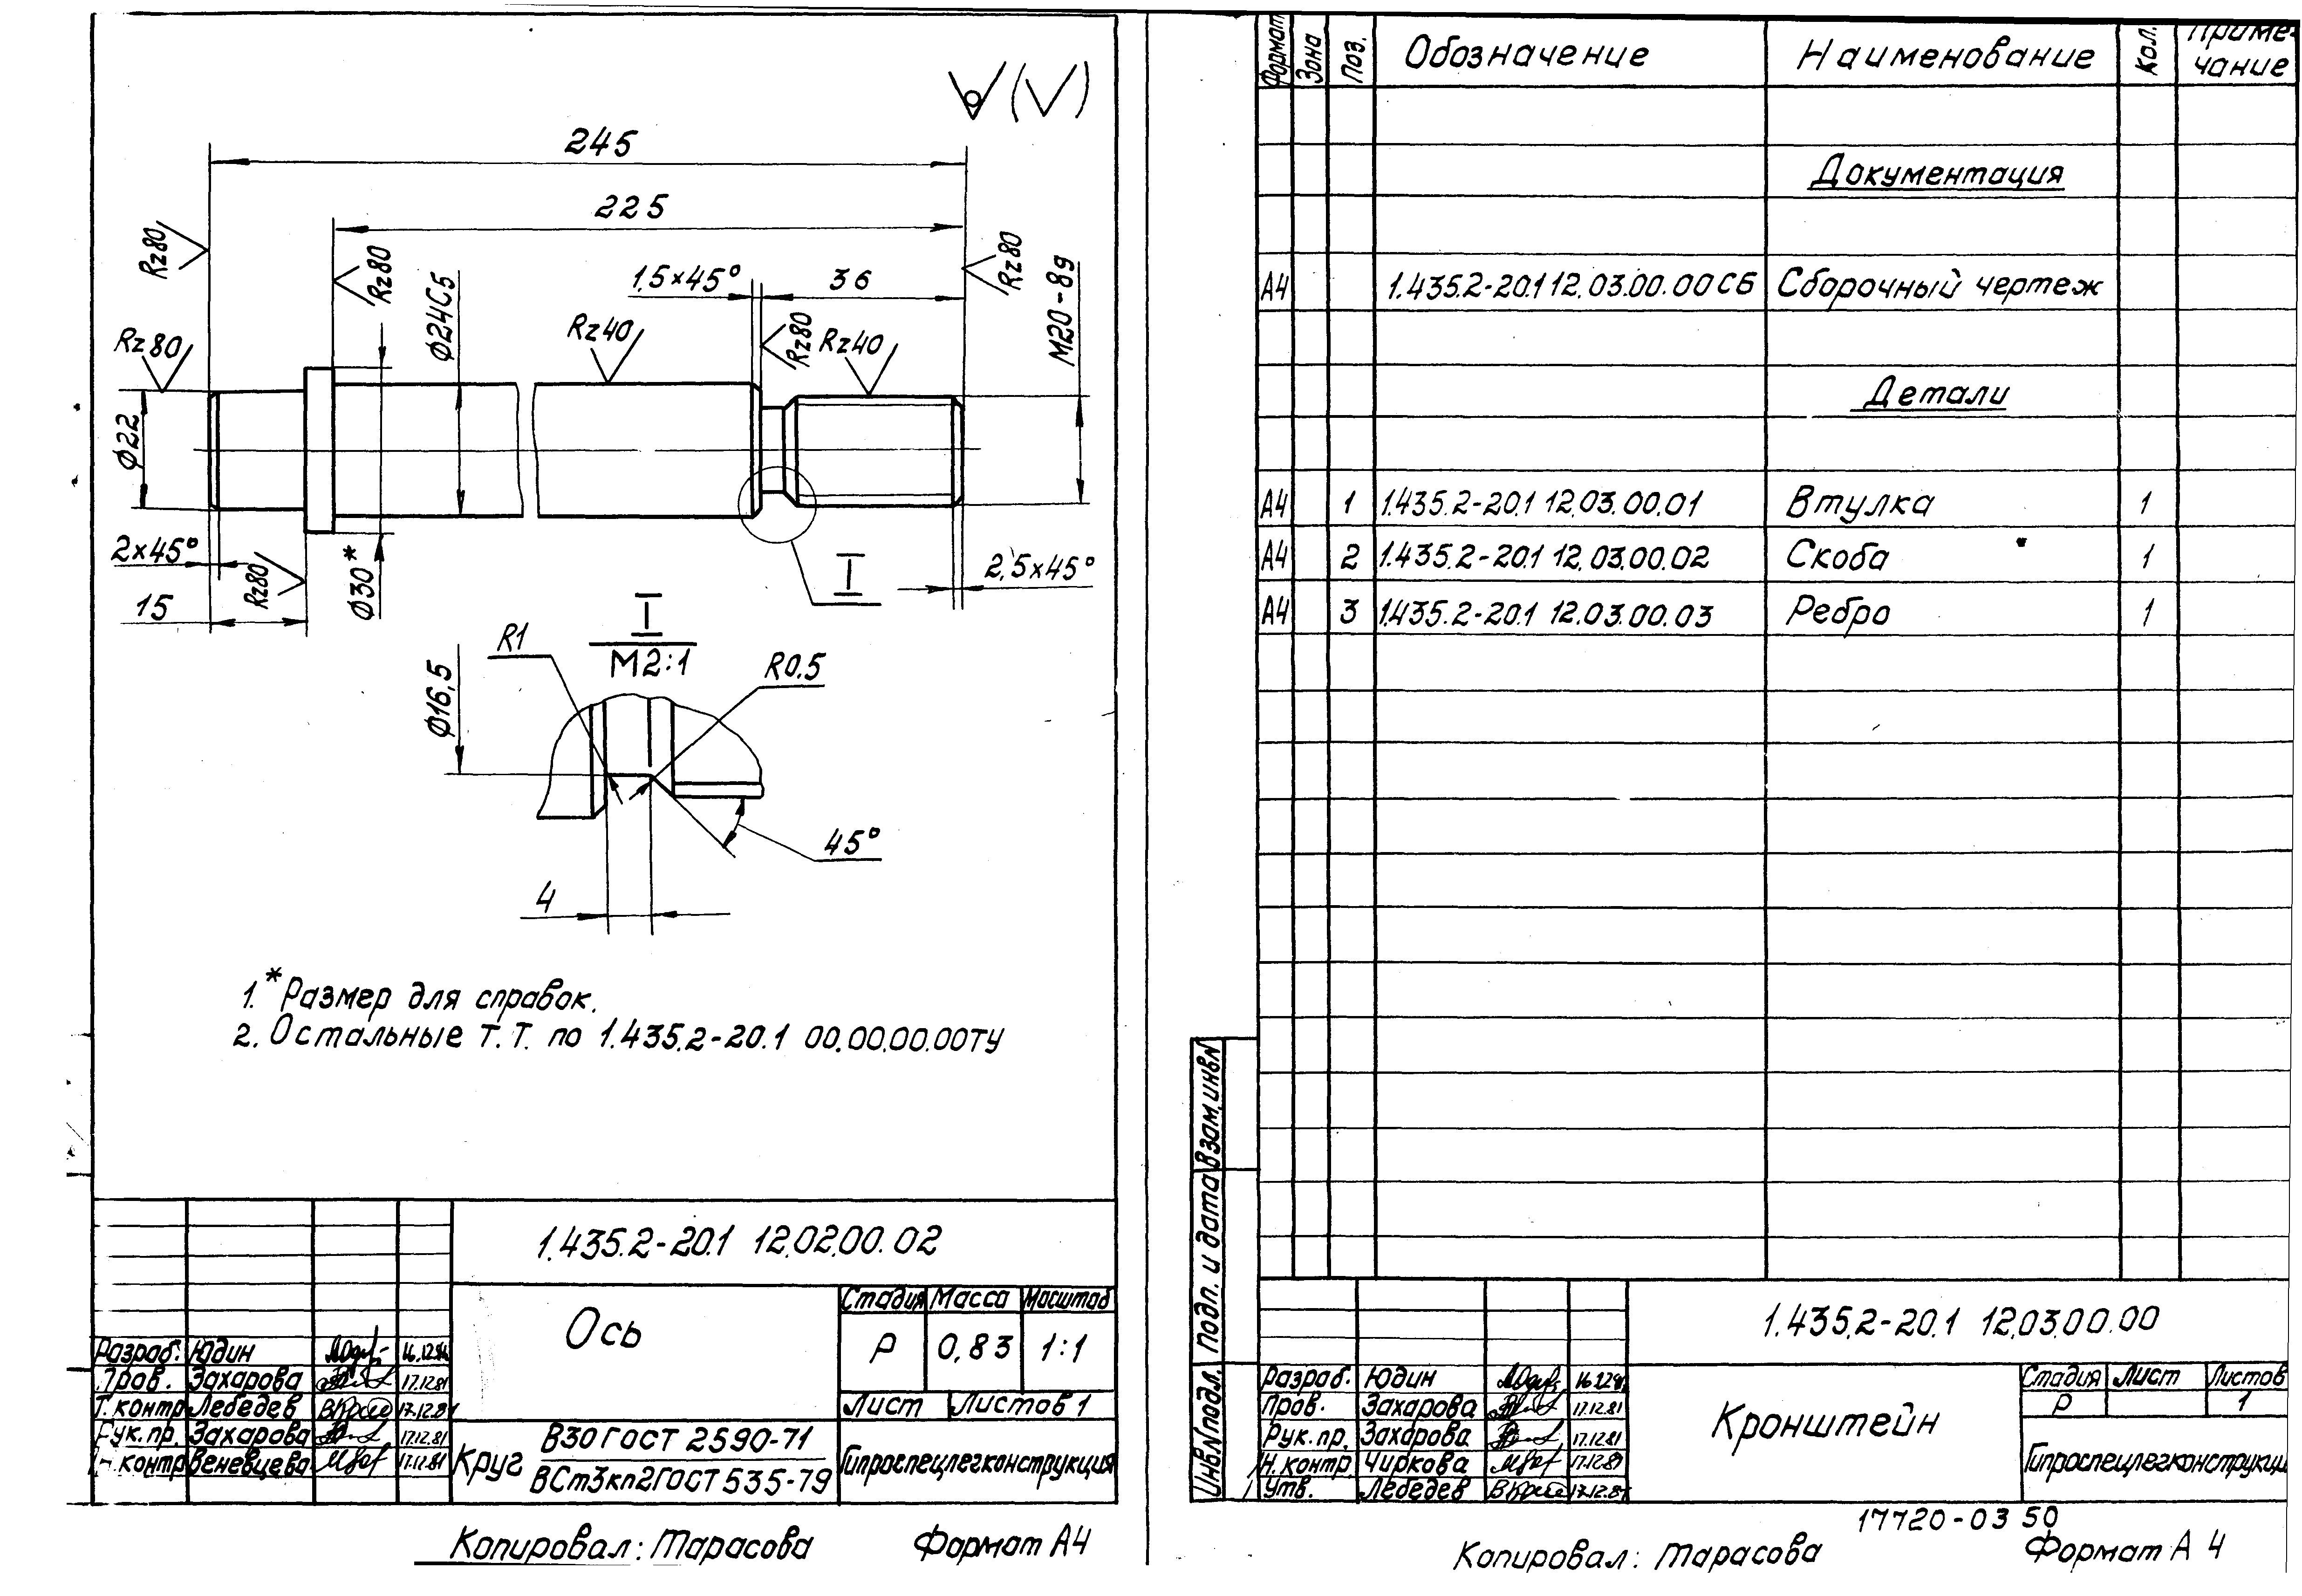 245
225
1,5×45°
36
Rz80
Rz80
Rz80
Rz80
Rz40
Rz80
Rz40
Ø24С5
М20-8g
Ø22
2×45°
Rz80
Ø30*
15
2,5×45°
I
I
М2:1
R1
R0,5
Ø16,5
45°
4
1.*Размер для справок.
2. Остальные т.т. по 1.435.2-20.1 00.00.00.00ТУ
1.435.2-20.1 12.02.00.02
Ось
Стадия Масса Масштаб
Р 0,83 1:1
Лист Листов 1
Разраб. Юдин 16.12.81
Пров. Захарова 17.12.81
Т.контр Лебедев 17.12.81
Рук.пр. Захарова 17.12.81
Н.контр Веневцева 17.12.81
Круг В30 ГОСТ 2590-71
ВСт3кп2 ГОСТ 535-79
Гипроспецлегконструкция
Копировал: Тарасова Формат А4
Формат Зона Поз. Обозначение Наименование Кол. Приме-
чание
Документация
А4 1.435.2-20.1 12.03.00.00СБ Сборочный чертеж
Детали
А4 1 1.435.2-20.1 12.03.00.01 Втулка 1
А4 2 1.435.2-20.1 12.03.00.02 Скоба 1
А4 3 1.435.2-20.1 12.03.00.03 Ребро 1
Взам.инв.N
Подп. и дата
Инв.N подл.
1.435.2-20.1 12.03.00.00
Кронштейн
Стадия Лист Листов
Р 1
Разраб. Юдин
Пров. Захарова 17.12.81
Рук.пр. Захарова 17.12.81
Н.контр. Чиркова 17.12.81
Утв. Лебедев 17.12.81
Гипроспецлегконструкци
17720-03 50
Копировал: Тарасова Формат А4